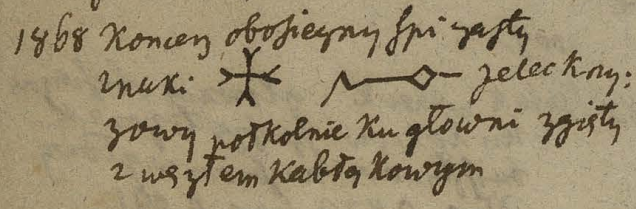 1868 Koniec obosieczny spiczasty
znaki jelec krzy:
żowy połkolnie ku głowni zgięty
z węzłem kabłąkowym